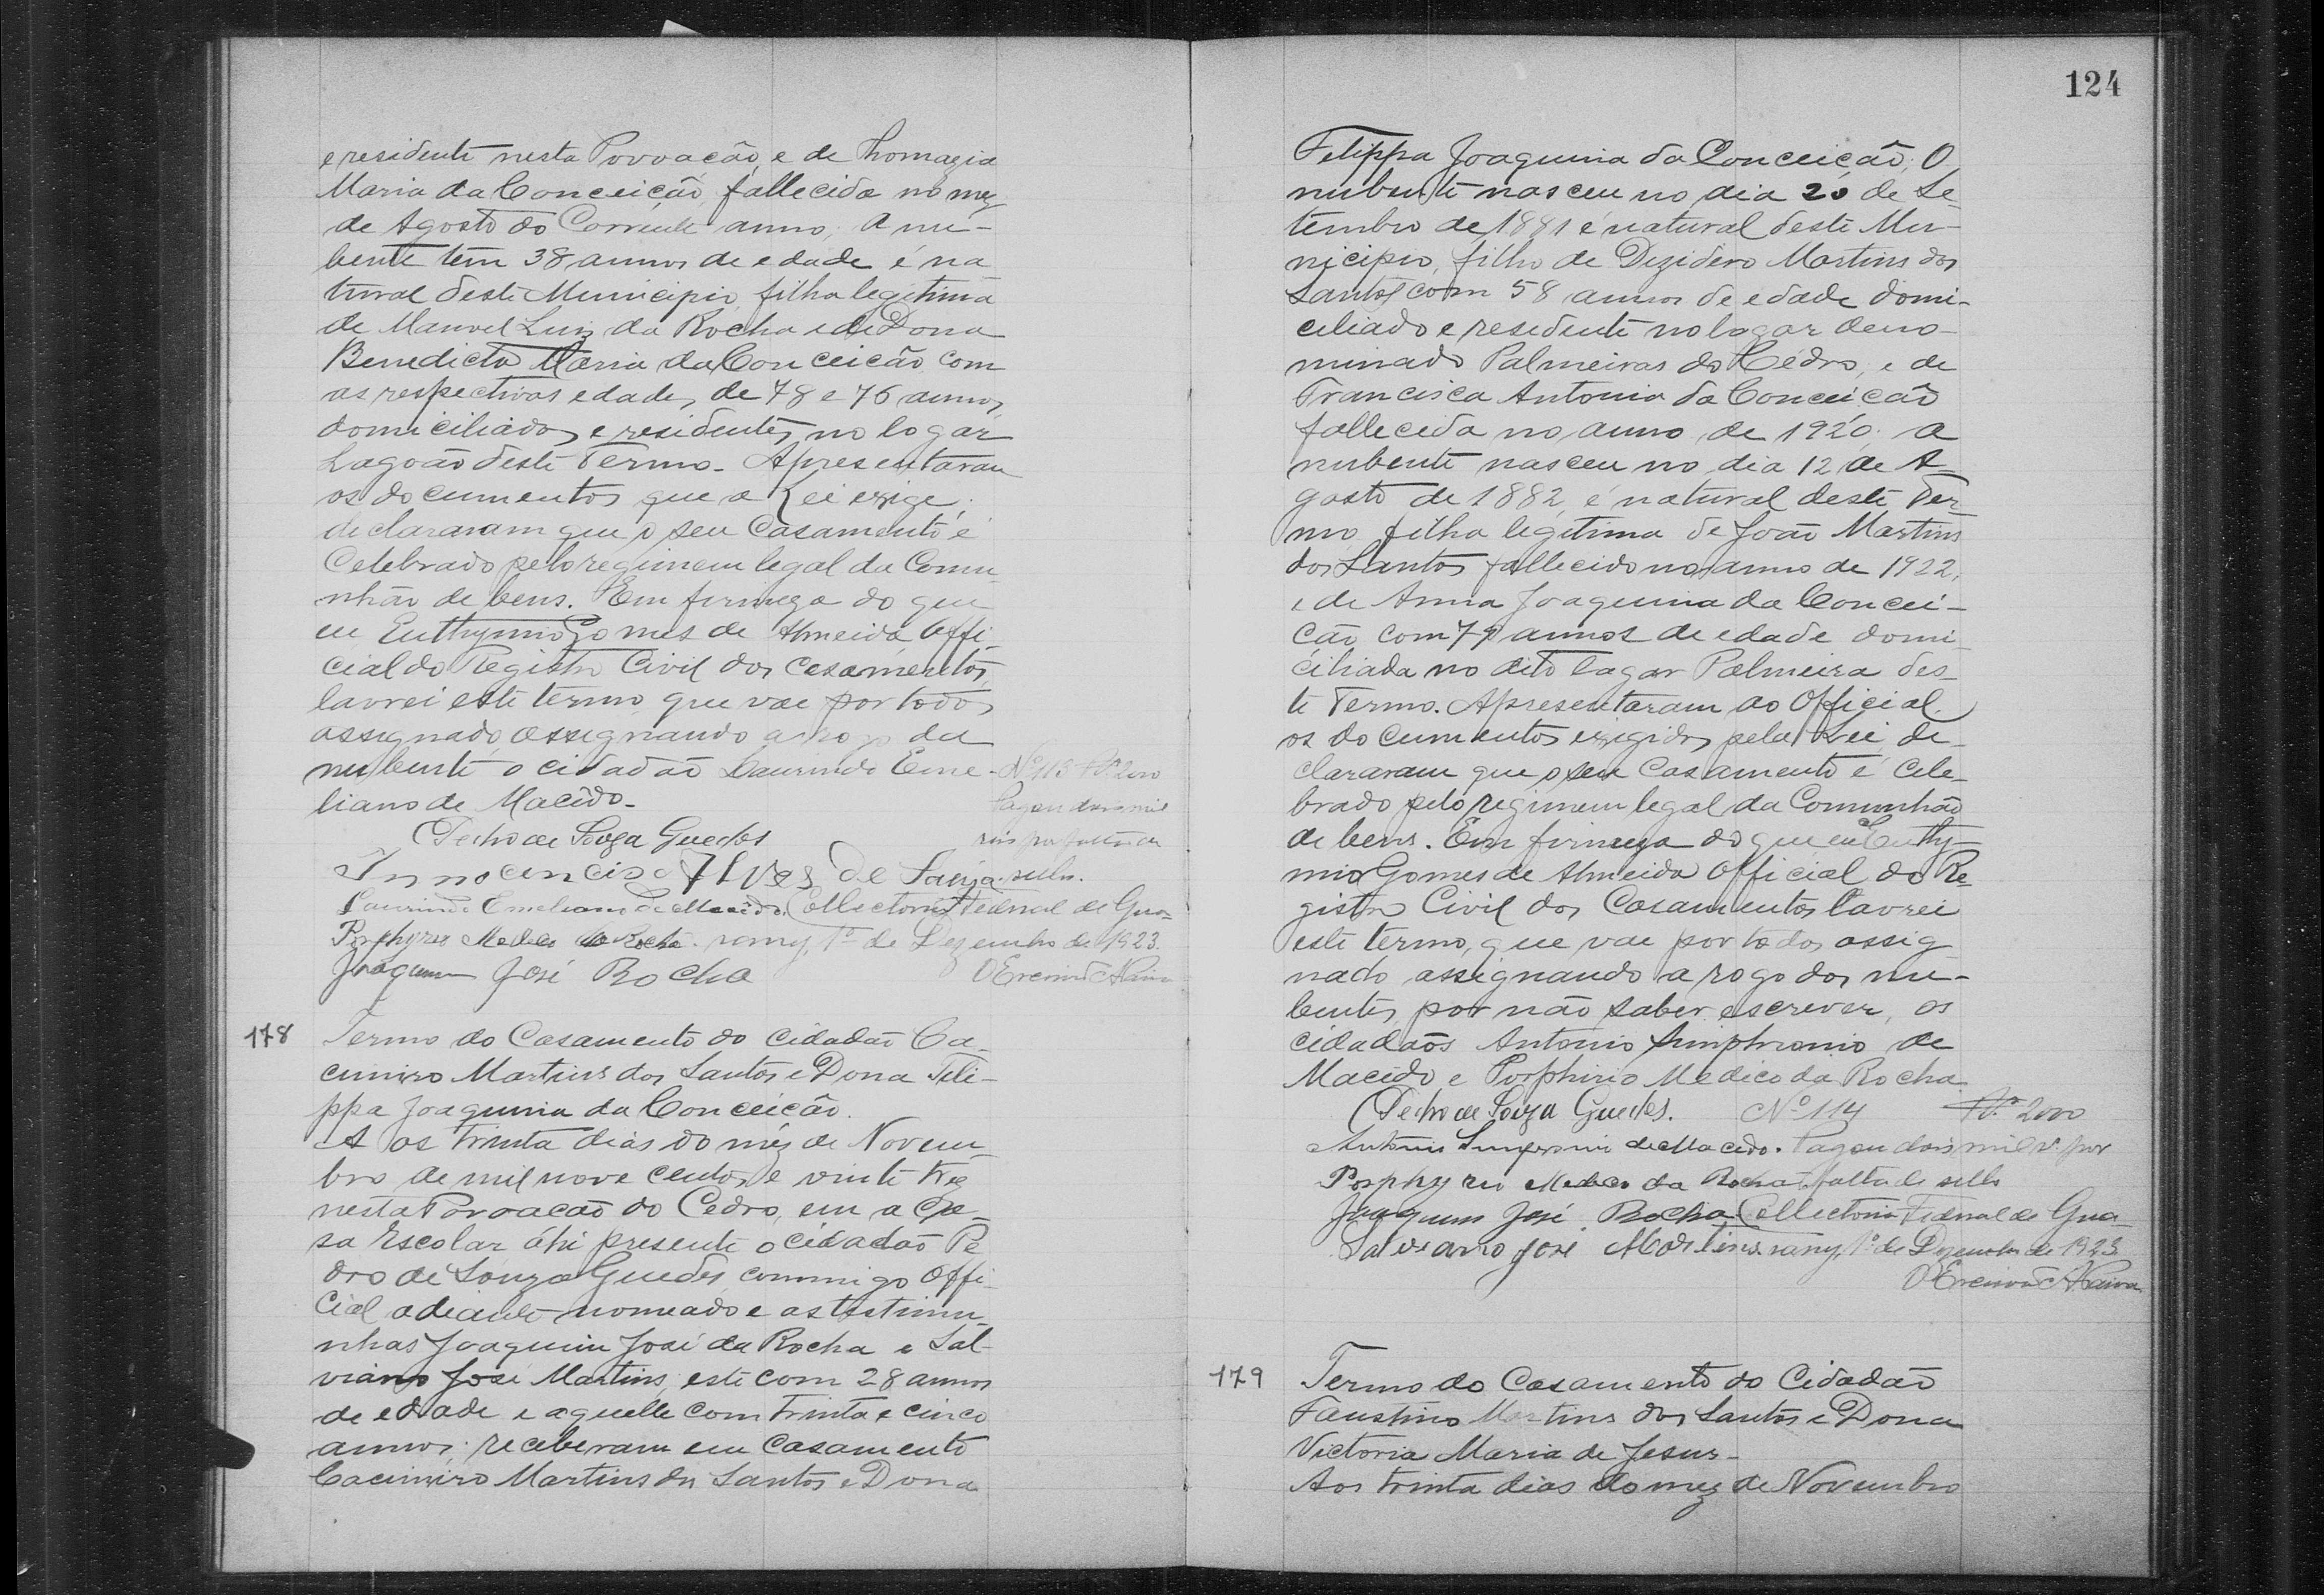 e residente nesta Povoação, e de Thomazia
Maria da Conceição, fallecida no mez
de Agosto do Corrente anno; A nu-
bente tem 38 annos de edade é na
tural deste Municipio, filha legitima
de Manoel Luiz da Rocha e de Dona
Benedicta Maria da Conceicão com
as respectivas edades de 78 e 76 annos,
domiciliados e residentes no logar
Lagoão deste Termo. Apresentaram
os documentos que a Lei exige;
declararam que o seu Casamento é
Celebrado pelo regimem legal da Comu
nhão de bens. Em firmeza do que
eu Euthymio Gomes de Almeida Offi
cial do Registro Civil dos Casamentos,
lavrei este termo que vae por todos
assignado, assignando a rogo da
nubente o cidadão Laurindo Eme-
liano de Macêdo.
Nº 113 Rs. 2000
Pagou dois mil
reis por falta de
sello.
Pedro de Souza Guedes
Innocencio Alves de
Laurindo Emeliano de Macêdo
Porphyrio Medico da Rocha
Joaquim José Rocha
Collectoria Federal de Gua-
rany, 1º de Dezembro de 1923.
178
Termo do Casamento do cidadão Ca-
cimiro Martins dos Santos e Dona Fili-
ppa Joaquina da Conceicão.
A os trinta dias do mêz de Novem-
bro de mil nove centos e vinte trez
nesta Povoacão do Cedro, em a Ca-
sa Escolar ahi presente o cidadão Pe
dro de Souza Guedes commigo Offi-
cial adiante nomeado e as testimu-
nhas Joaquim José da Rocha e Sal-
viano José Martins, este com 28 annos
de edade e aquelle com trinta e cinco
annos; receberam em casamento
Cacimiro Martins dos Santos e Dona
124
Filippa Joaquina da Conceição; O
nubente nasceu no dia 20 de Se-
tembro de 1881 é natural deste Mu-
nicipio, filho de Deziderio Martins dos
Santos com 58 annos de edade domi-
ciliado e residente no logar deno-
minado Palmeiras do Cédro, e de
Francisca Antonia da Conceição
fallecida no anno de 1920; a
nubente nasceu no dia 12 de A-
gosto de 1882, é natural deste Ter
mo filha legitima de João Martins
dos Santos fallecido no anno de 1922,
e de Anna Joaquina da Concei-
cão com annos de edade domi
ciliada no dito logar Palmeira des-
te Termo. Apresentaram ao Official
os documentos exigidos pela Lei, de-
clararam que o seu Casamento é Cele-
brado pelo regimem legal da Comunhão
de bens. Em firmeza do que eu Euthy-
mio Gomes de Almeida Official do Re-
gistro Civil dos Casamentos lavrei
este termo, que vae por todos assig
nado assignando a rogo dos nu-
bentes por não saber escrever, os
cidadãos Antonio Simphronio de
Macêdo e Porphirio Medico da Rocha
Pedro de Souza Guedes. Nº 114 Rs. 2000
Antonio de Macedo. Pagou dois mil rs. por
Porphyrio Medico da Rocha falta de sello
Joaquim José Rocha Collectoria Federal de Gua-
Salviano José Martins rany, 1º de Dezembro de 1923
179
Termo do Casamento do Cidadão
Faustino Martins dos Santos e Dona
Victoria Maria de Jesus-
Aos trinta dias do mez de Novembro